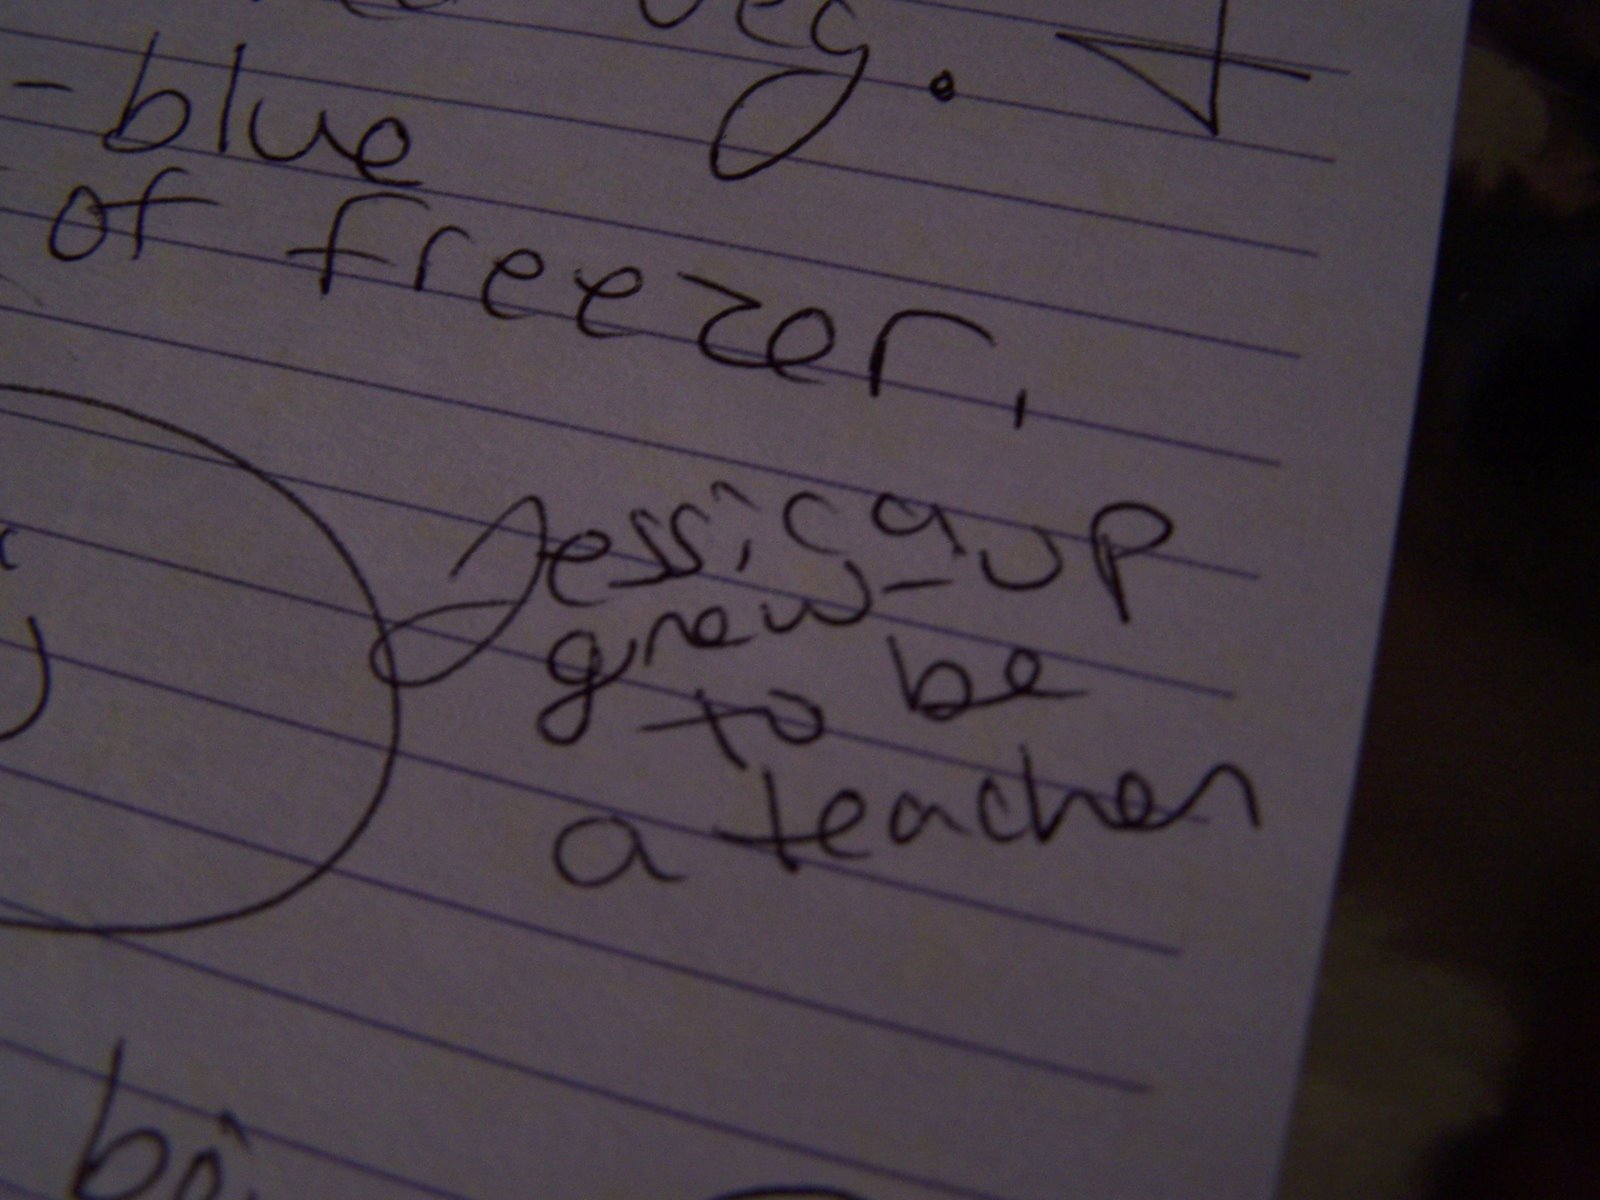 veg.
- blue
of freezer,
Jessica
grew-up
to be
a teacher